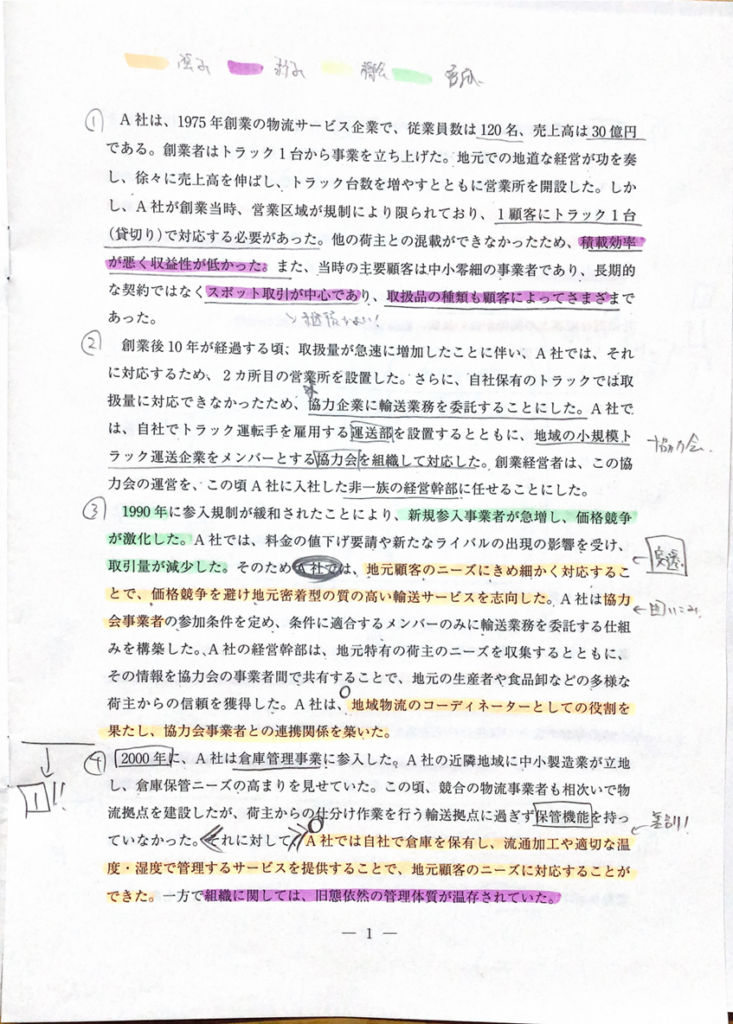 強み 弱み 機会 脅威
① A社は、1975年創業の物流サービス企業で、従業員数は120名、売上高は30億円
である。創業者はトラック1台から事業を立ち上げた。地元での地道な経営が功を奏
し、徐々に売上高を伸ばし、トラック台数を増やすとともに営業所を開設した。しか
し、A社が創業当時、営業区域が規制により限られており、1顧客にトラック1台
(貸切り)で対応する必要があった。他の荷主との混載ができなかったため、積載効率
が悪く収益性が低かった。また、当時の主要顧客は中小零細の事業者であり、長期的
な契約ではなくスポット取引が中心であり、取扱品の種類も顧客によってさまざまで
あった。
② 創業後10年が経過する頃、取扱量が急速に増加したことに伴い、A社では、それ
に対応するため、2カ所目の営業所を設置した。さらに、自社保有のトラックでは取
扱量に対応できなかったため、協力企業に輸送業務を委託することにした。A社で
は、自社でトラック運転手を雇用する運送部を設置するとともに、地域の小規模ト
ラック運送企業をメンバーとする協力会を組織して対応した。創業経営者は、この協
協力会
力会の運営を、この頃A社に入社した非一族の経営幹部に任せることにした。
③ 1990年に参入規制が緩和されたことにより、新規参入事業者が急増し、価格競争
が激化した。A社では、料金の値下げ要請や新たなライバルの出現の影響を受け、
取引量が減少した。そのためA社では、地元顧客のニーズにきめ細かく対応するこ
とで、価格競争を避け地元密着型の質の高い輸送サービスを志向した。A社は協力
会事業者の参加条件を定め、条件に適合するメンバーのみに輸送業務を委託する仕組
←囲いこみ
みを構築した。A社の経営幹部は、地元特有の荷主のニーズを収集するとともに、
その情報を協力会の事業者間で共有することで、地元の生産者や食品卸などの多様な
荷主からの信頼を獲得した。A社は、地域物流のコーディネーターとしての役割を
果たし、協力会事業者との連携関係を築いた。
④ 2000年に、A社は倉庫管理事業に参入した。A社の近隣地域に中小製造業が立地
し、倉庫保管ニーズの高まりを見せていた。この頃、競合の物流事業者も相次いで物
流拠点を建設したが、荷主からの仕分け作業を行う輸送拠点に過ぎず保管機能を持っ
ていなかった。それに対して、A社では自社で倉庫を保有し、流通加工や適切な温
←差別!
度・湿度で管理するサービスを提供することで、地元顧客のニーズに対応することが
できた。一方で組織に関しては、旧態依然の管理体質が温存されていた。
— 1 —